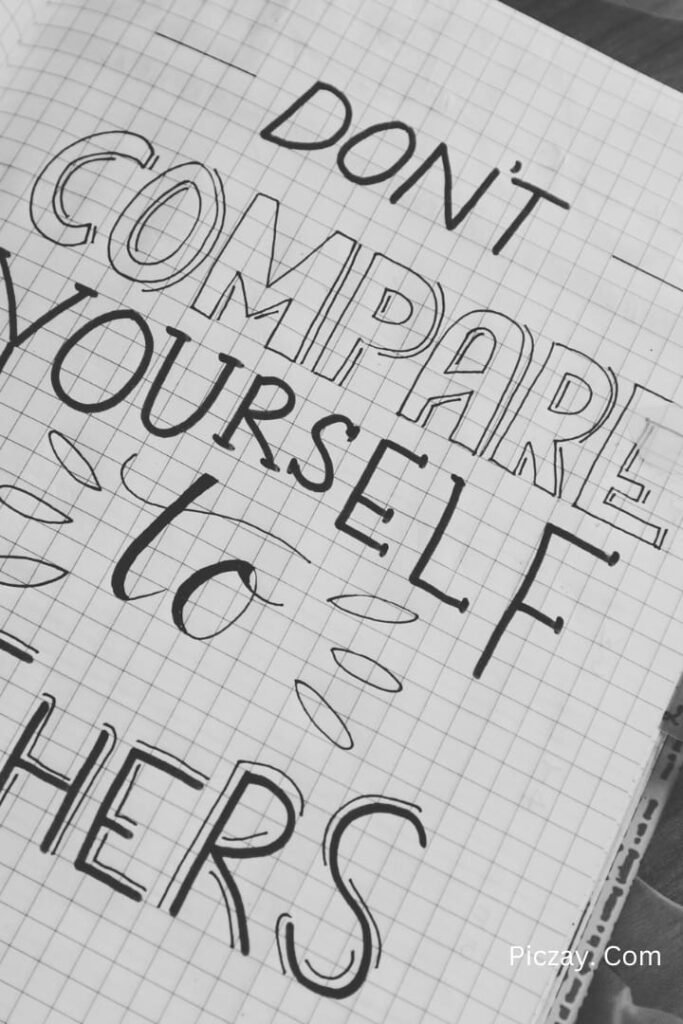 DON'T
COMPARE
YOURSELF
to
HERS
Piczay. Com